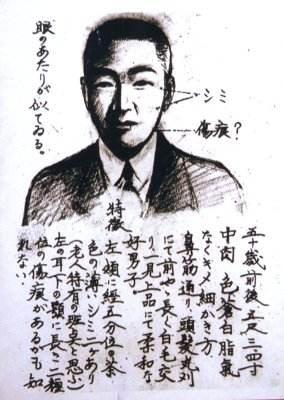 眼のあたりが似てゐる。
シミ
傷痕?
五十歳前後 五尺三四寸
中肉 色蒼白脂気
なくキメ細かき方、
鼻筋通り、頭髪刈
にて前やゝ長く白毛交
り一見上品にて柔和な
好男子
特徴
左頬に経五分位の茶
色の薄いシミ二ヶあり
(老人特有の斑点と思ふ)
左の耳下の顎に長さ二糎
位の傷痕があるかも知
れない